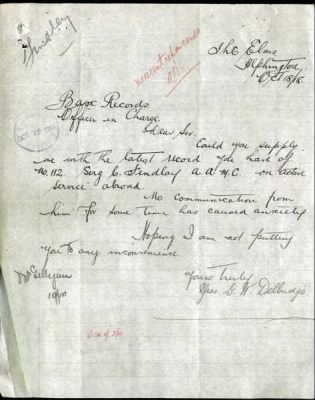 The Elms
Alphington
Oct 18/18.
Base Records
Officer in Charge.
Dear Sir.
Could you supply
me with the latest record you have of
No 112. Serg C. Findlay A.A.M.C. on active
service abroad.
No communication from
him for some time has caused anxiety
Hoping I am not putting
you to any inconvenience
Yours Truly
Mrs G. W. Delbridge
19/10